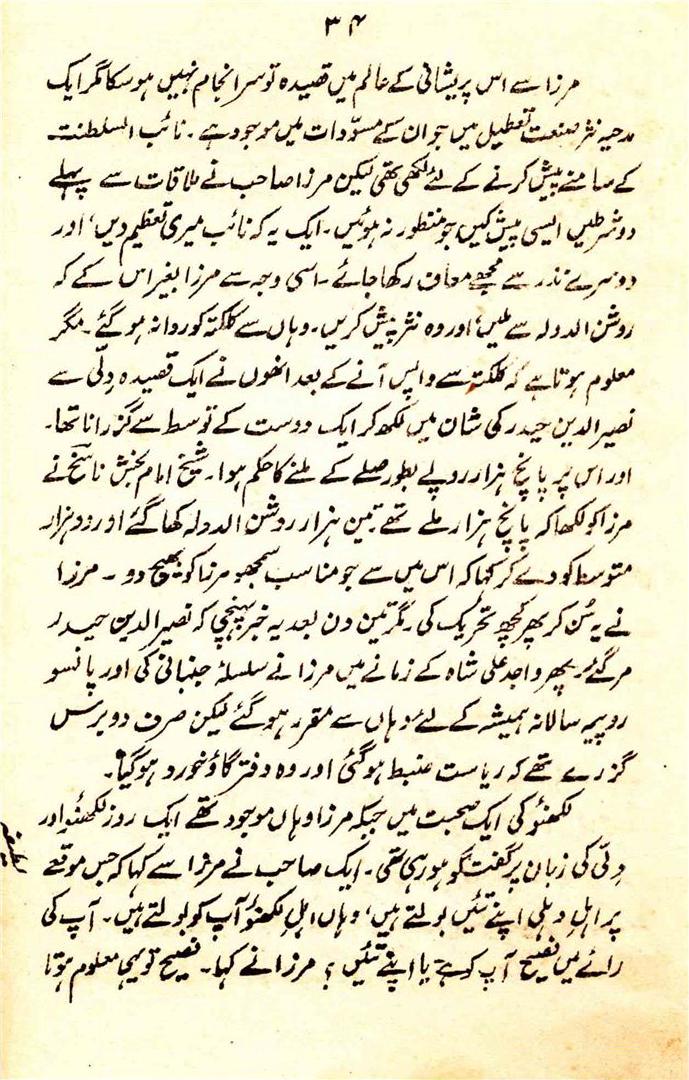 ۳۴
مرزا سے اس پریشانی کے عالم میں قصیدہ تو سرانجام نہیں ہو سکا مگر ایک
مدحیہ نثر صنعت تعطیل میں جو ان کے مسوّدات میں موجود ہے۔ نائب السلطنت
کے سامنے پیش کرنے کے لئے لکھی تھی لیکن مرزا صاحب نے ملاقات سے پہلے
دو شرطیں ایسی پیش کیں جو منظور نہ ہوئیں۔ ایک یہ کہ نائب میری تعظیم دیں، اور
دوسرے نذر سے مجھے معاف رکھا جائے۔ اسی وجہ سے مرزا بغیر اس کے کہ
روشن الدولہ سے ملیں، اور وہ نثر پیش کریں۔ وہاں سے کلکتہ کو روانہ ہو گئے۔ مگر
معلوم ہوتا ہے کہ کلکتہ سے واپس آنے کے بعد انھوں نے ایک قصیدہ دلّی سے
نصیر الدین حیدر کی شان میں لکھ کر ایک دوست کے توسط سے گزرانا تھا۔
اور اس پر پانچ ہزار روپے بطور صلے کے ملنے کا حکم ہوا۔ شیخ امام بخش ناسخ نے
مرزا کو لکھا کہ پانچ ہزار ملے تھے تین ہزار روشن الدولہ کھا گئے اور دو ہزار
متوسط کو دے کر کہا کہ اس میں سے جو مناسب سمجھو مرزا کو بھیج دو۔ مرزا
نے یہ سُن کر پھر کچھ تحریک کی۔ مگر تین دن بعد یہ خبر پہنچی کہ نصیر الدین حیدر
مر گئے۔ پھر واجد علی شاہ کے زمانے میں مرزا نے سلسلۂ جنبانی کی اور پانسو
روپیہ سالانہ ہمیشہ کے لئے وہاں سے مقرر ہو گئے لیکن صرف دو برس
گزرے تھے کہ ریاست ضبط ہو گئی اور وہ دفتر گاؤ خورد ہو گیا۔
لکھنؤ کی ایک صحبت میں جبکہ مرزا وہاں موجود تھے ایک روز لکھنؤ اور
لطیفہ
دلّی کی زبان پر گفتگو ہو رہی تھی۔ ایک صاحب نے مرزا سے کہا کہ جس موقعے
پر اہلِ دہلی اپنے تئیں بولتے ہیں، وہاں اہلِ لکھنؤ آپ کو بولتے ہیں۔ آپ کی
رائے میں فصیح آپ کو ہے یا اپنے تئیں؟ مرزا نے کہا۔ فصیح تو یہی معلوم ہوتا